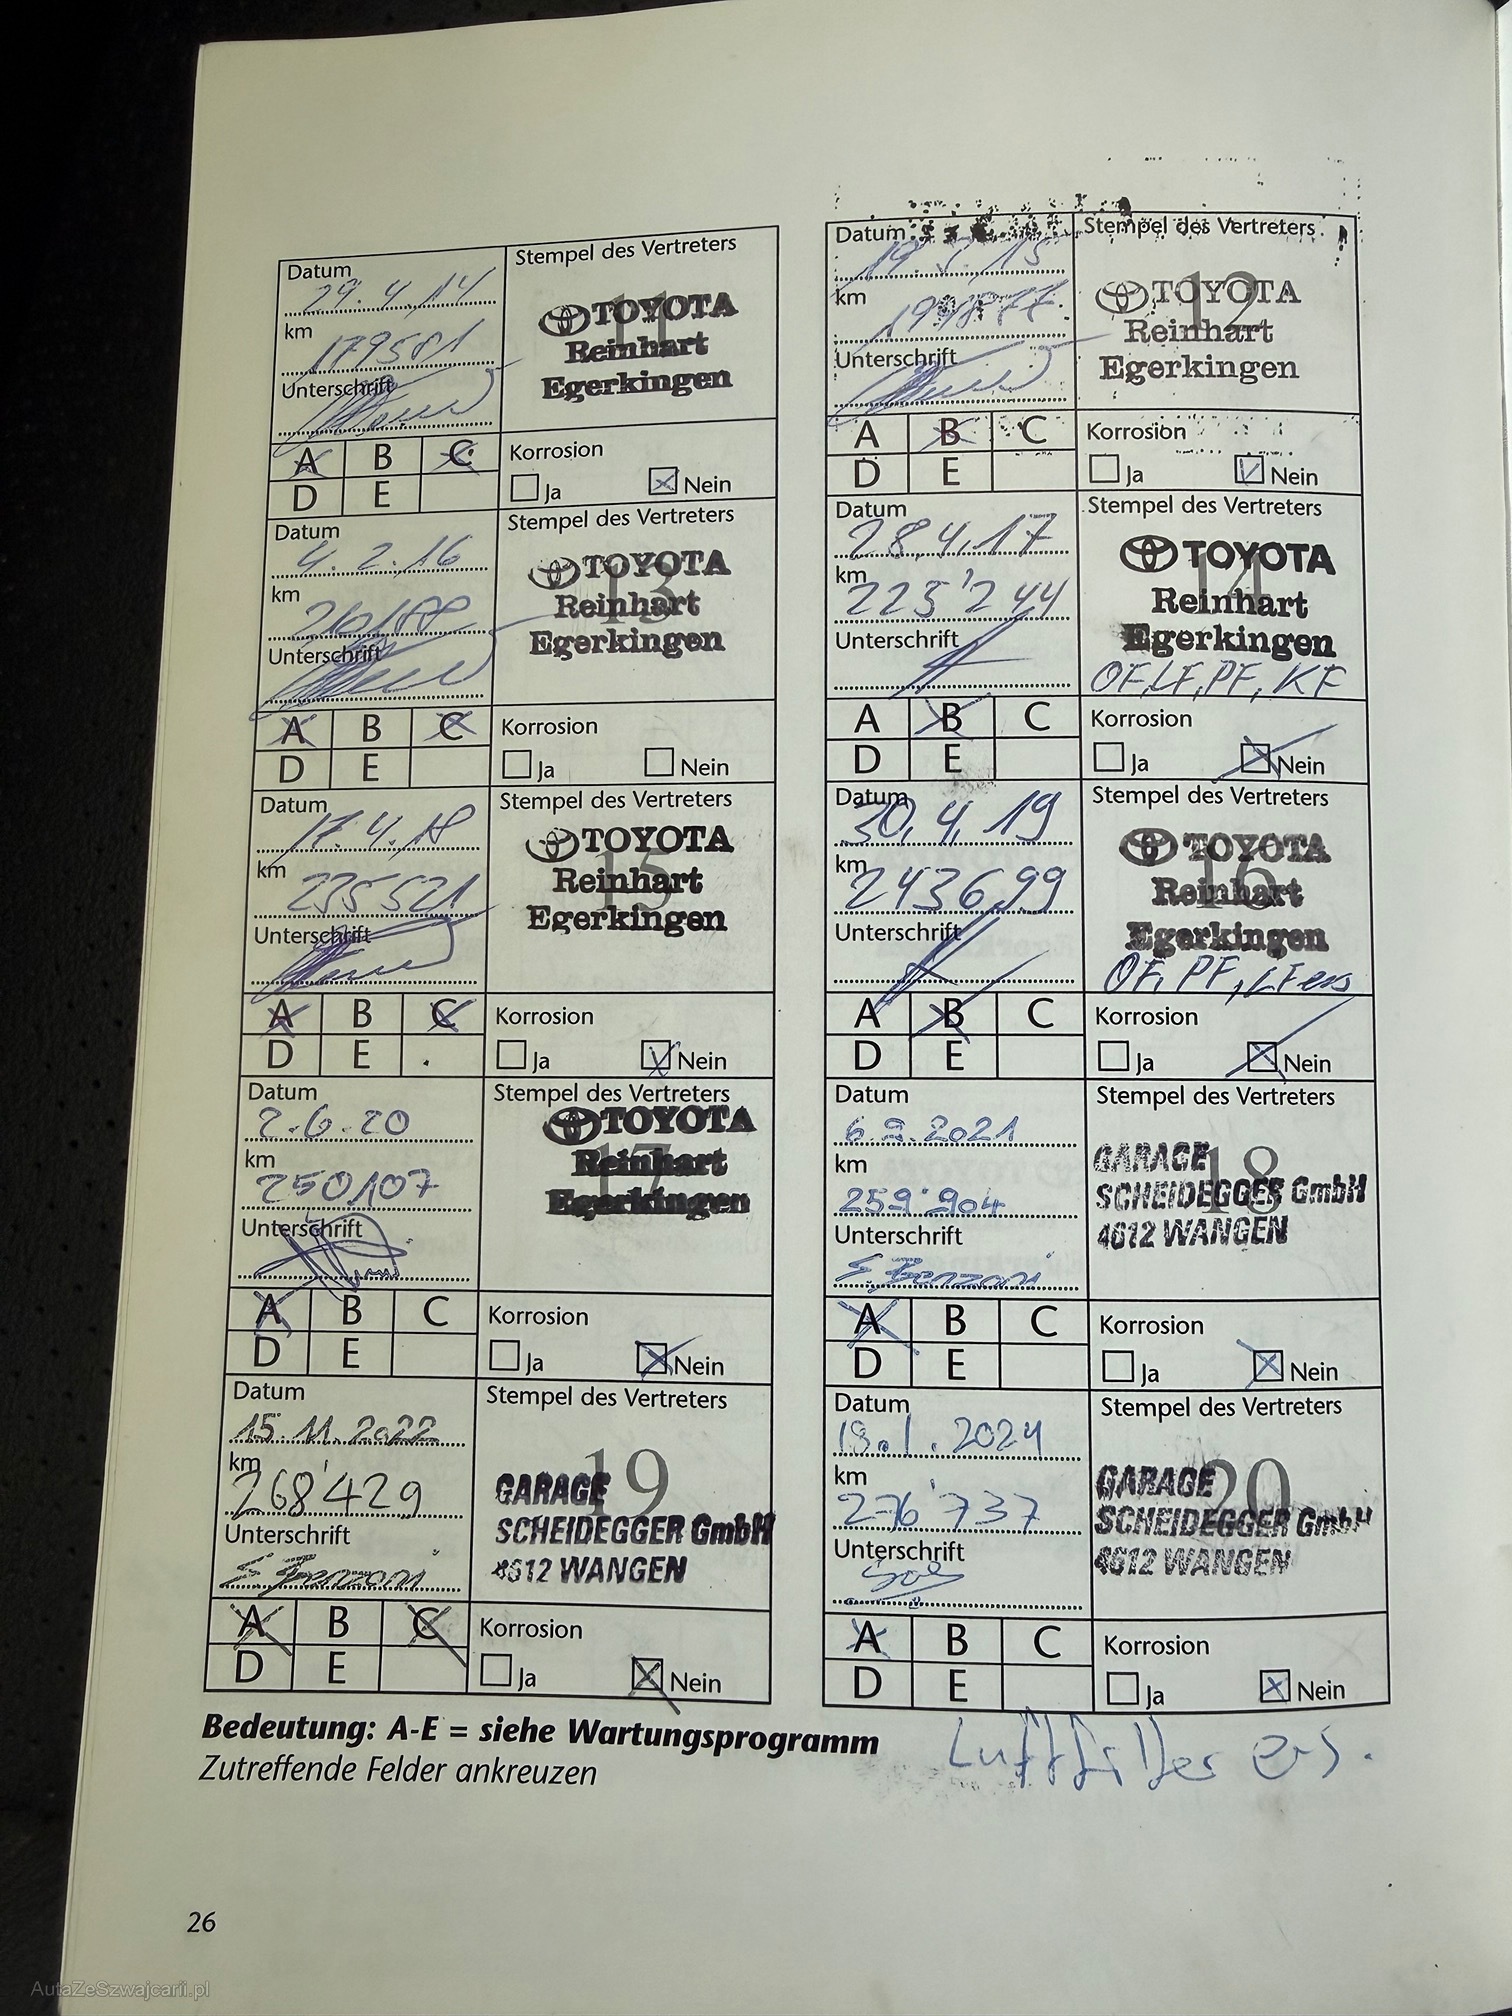 Datum
29.4.14
km
179581
Unterschrift
Stempel des Vertreters
11
TOYOTA
Reinhart
Egerkingen
A B C
D E
Korrosion
Ja Nein
Datum
km
Unterschrift
Stempel des Vertreters
12
TOYOTA
Reinhart
Egerkingen
A B C
D E
Korrosion
Ja Nein
Datum
4.2.16
km
210188
Unterschrift
Stempel des Vertreters
13
TOYOTA
Reinhart
Egerkingen
A B C
D E
Korrosion
Ja Nein
Datum
28.4.17
km
223'244
Unterschrift
Stempel des Vertreters
14
TOYOTA
Reinhart
Egerkingen
OF, LF, PF, KF
A B C
D E
Korrosion
Ja Nein
Datum
17.4.18
km
235521
Unterschrift
Stempel des Vertreters
15
TOYOTA
Reinhart
Egerkingen
A B C
D E
Korrosion
Ja Nein
Datum
30.4.19
km
243699
Unterschrift
Stempel des Vertreters
16
TOYOTA
Reinhart
Egerkingen
OF, PF, LF ers
A B C
D E
Korrosion
Ja Nein
Datum
2.6.20
km
250107
Unterschrift
Stempel des Vertreters
17
TOYOTA
Reinhart
Egerkingen
A B C
D E
Korrosion
Ja Nein
Datum
6.9.2021
km
259'904
Unterschrift
S. Benzoni
Stempel des Vertreters
18
GARAGE
SCHEIDEGGER GmbH
4612 WANGEN
A B C
D E
Korrosion
Ja Nein
Datum
15.11.2022
km
268'429
Unterschrift
S. Benzoni
Stempel des Vertreters
19
GARAGE
SCHEIDEGGER GmbH
4612 WANGEN
A B C
D E
Korrosion
Ja Nein
Datum
km
276'737
Unterschrift
Stempel des Vertreters
20
GARAGE
SCHEIDEGGER GmbH
4612 WANGEN
A B C
D E
Korrosion
Ja Nein
Bedeutung: A-E = siehe Wartungsprogramm
Zutreffende Felder ankreuzen
Luftfilter ers.
26
AutaZeSzwajcarii.pl